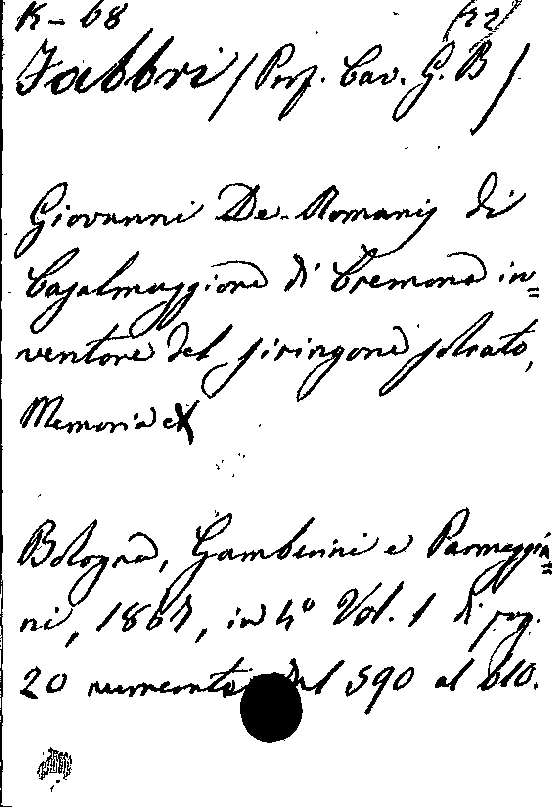 K-68 (22)
Fabbri / Prof. Cav. G. B /
Giovanni De-Romanis di
Casalmaggiore di Cremona in=
ventore del siringone solcato,
Memoria
Bologna, Gamberini e Parmeggia=
ni, 1867, in 4° Vol. 1 di pag.
20 numerate dal 590 al 610.